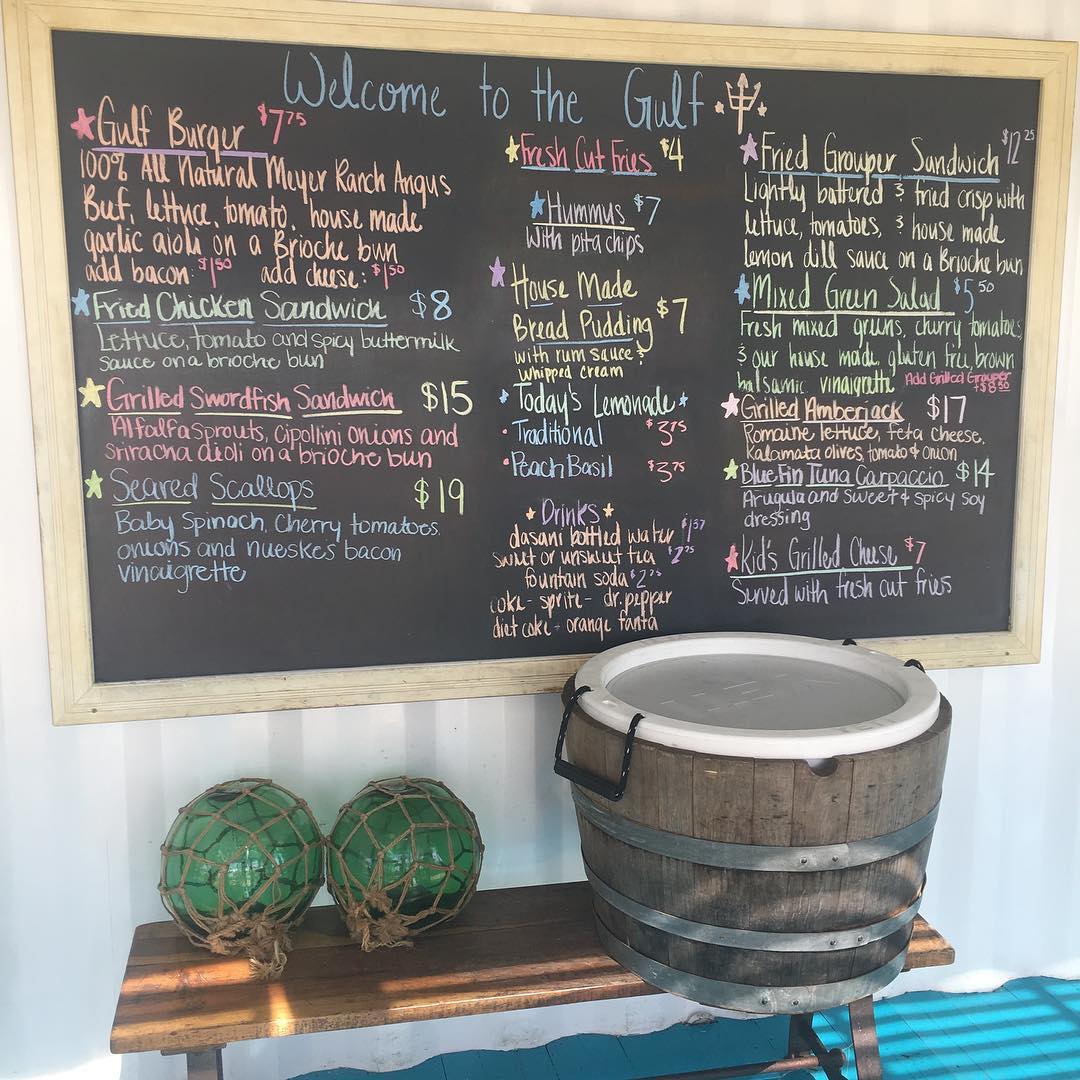 Welcome to the Gulf
Gulf Burger $7.75
100% All Natural Meyer Ranch Angus
Beef, lettuce, tomato, house made
garlic aioli on a Brioche bun
add bacon: $1.50 add cheese: $1.50
Fried Chicken Sandwich $8
Lettuce, tomato and spicy buttermilk
sauce on a brioche bun
Grilled Swordfish Sandwich $15
Alfalfa Sprouts, Cipollini onions and
Sriracha aioli on a brioche bun
Seared Scallops $19
Baby Spinach, Cherry tomatoes,
onions and nueske's bacon
vinaigrette
Fresh Cut Fries $4
Hummus $7
with pita chips
House Made
Bread Pudding $7
with rum sauce &
whipped cream
Today's Lemonade
Traditional $3.75
Peach Basil $3.75
Drinks
dasani bottled water
sweet or unsweet tea $2.75
fountain soda $2.75
coke - sprite - dr. pepper
diet coke - orange fanta
Fried Grouper Sandwich $12.25
Lightly battered & fried crisp with
lettuce, tomatoes, & house made
lemon dill sauce on a Brioche bun
Mixed Green Salad $5.50
Fresh mixed greens, cherry tomatoes
& our house made, gluten free, brown
balsamic vinaigrette Add Grilled Grouper
+$8.50
Grilled Amberjack $17
Romaine lettuce, feta cheese,
Kalamata olives, tomato & onion
Blue Fin Tuna Carpaccio $14
Arugula and sweet & spicy soy
dressing
Kid's Grilled Cheese $7
Served with fresh cut fries